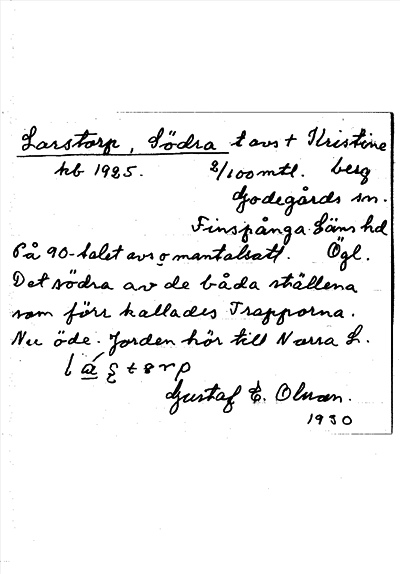 Larstorp, Södra t avs + Kristine
kb 1925. 2/100 mtl. berg
Godegårds sn.
Finspånga Läns hd
På 90-talet avs o mantalsatt. Ögl.
Det södra av de båda ställena
som förr kallades Trapporna.
Nu öde. Jorden hör till Norra L.
Gustaf E. Olson.
1930